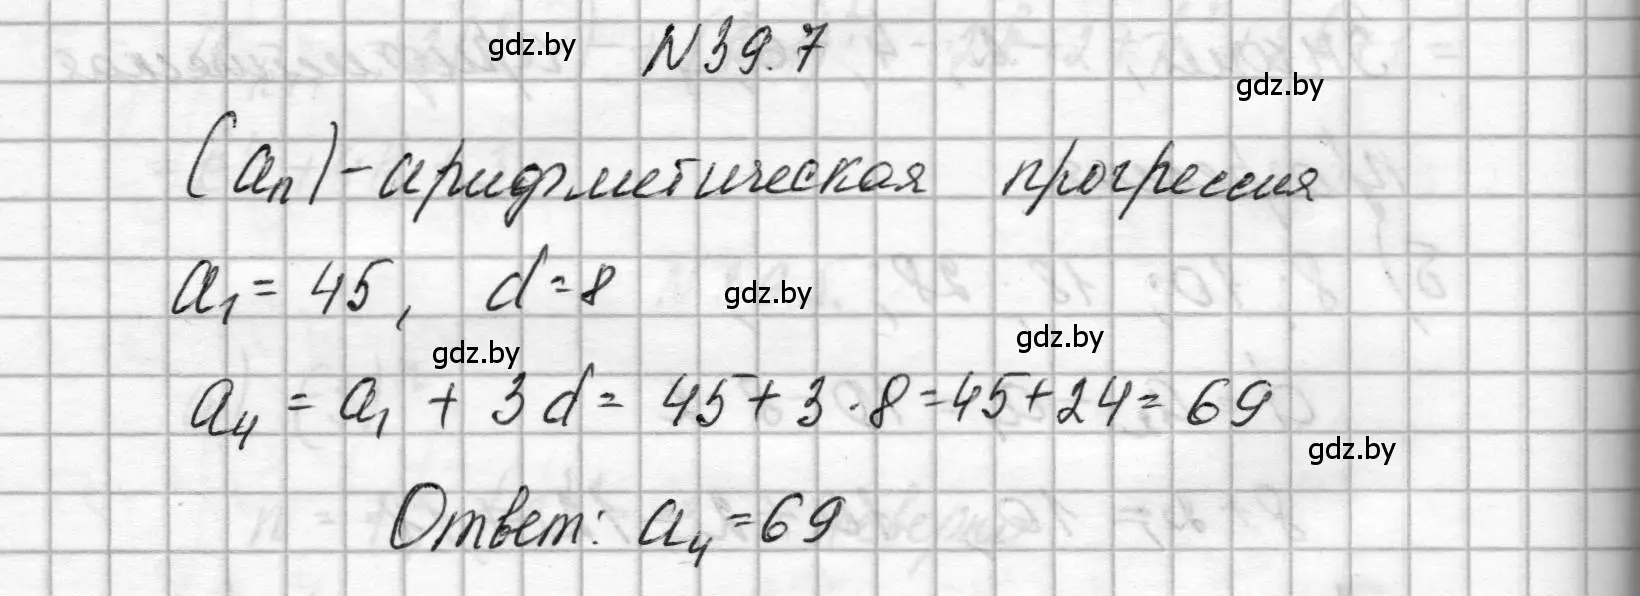 gdz.by N 39.7 gdz.by
(aₙ) - арифметическая прогрессия
a₁ = 45, d = 8 gdz.by
gdz.by gdz.by
a₄ = a₁ + 3d = 45 + 3 · 8 = 45 + 24 = 69
gdz.by
Ответ: a₄ = 69